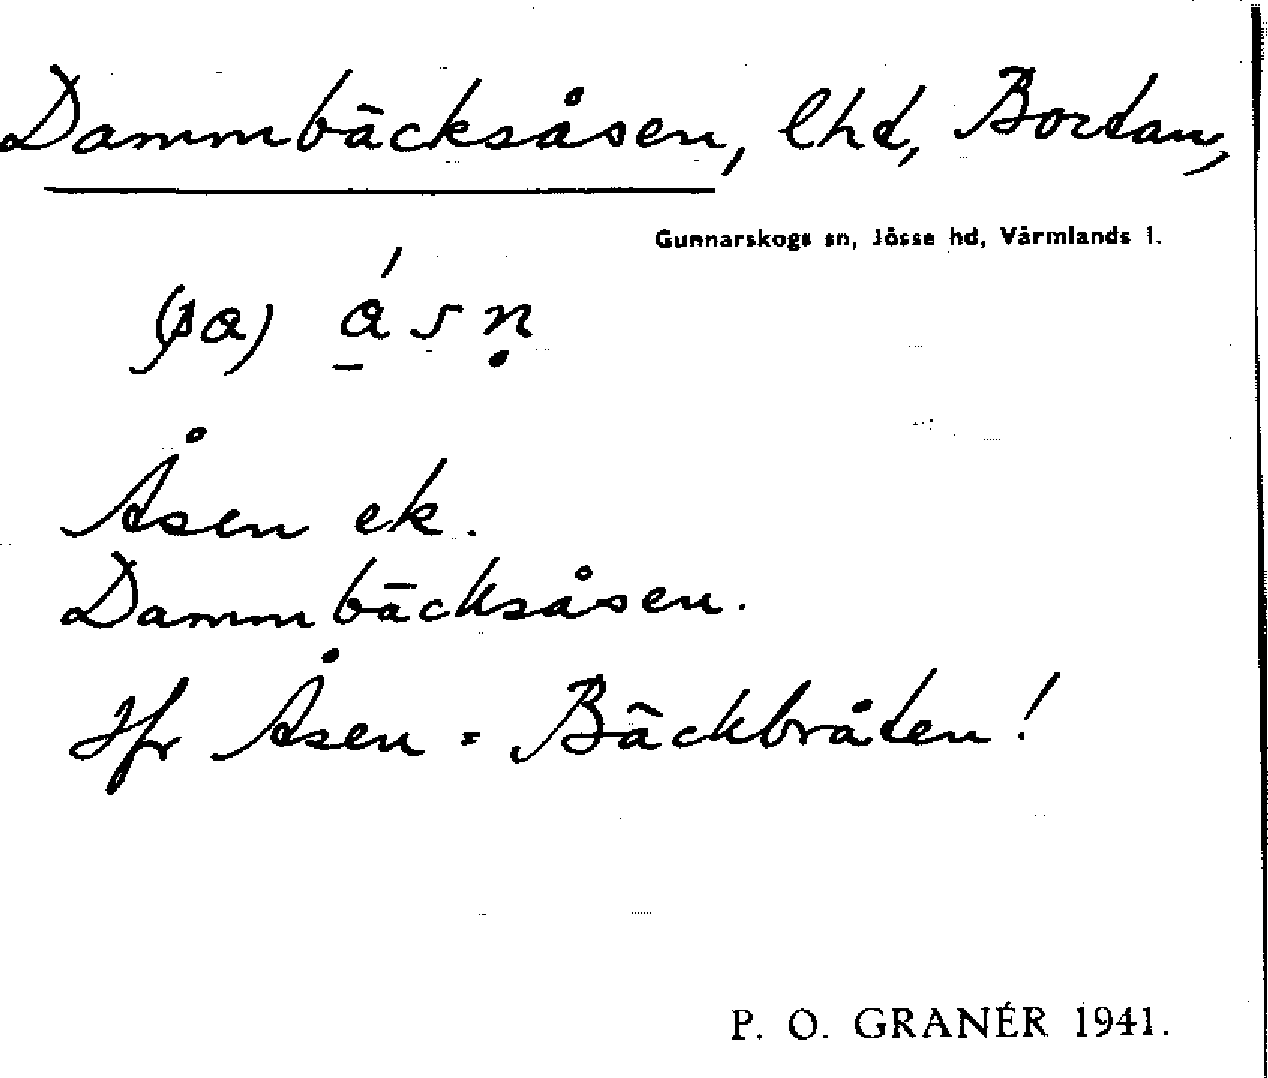 Dammbäcksåsen, lhd, Bortan,
Gunnarskogs sn, Jösse hd, Värmlands l.
(på) ásṇ
Åsen ek.
Dammbäcksåsen.
Jfr Åsen = Bäckbråten!
P. O. GRANÉR 1941.